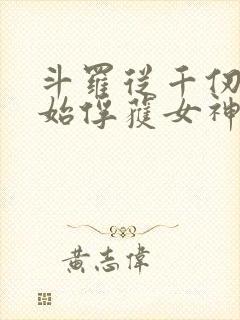 斗羅從千仞
始俘獲女神
黃志偉